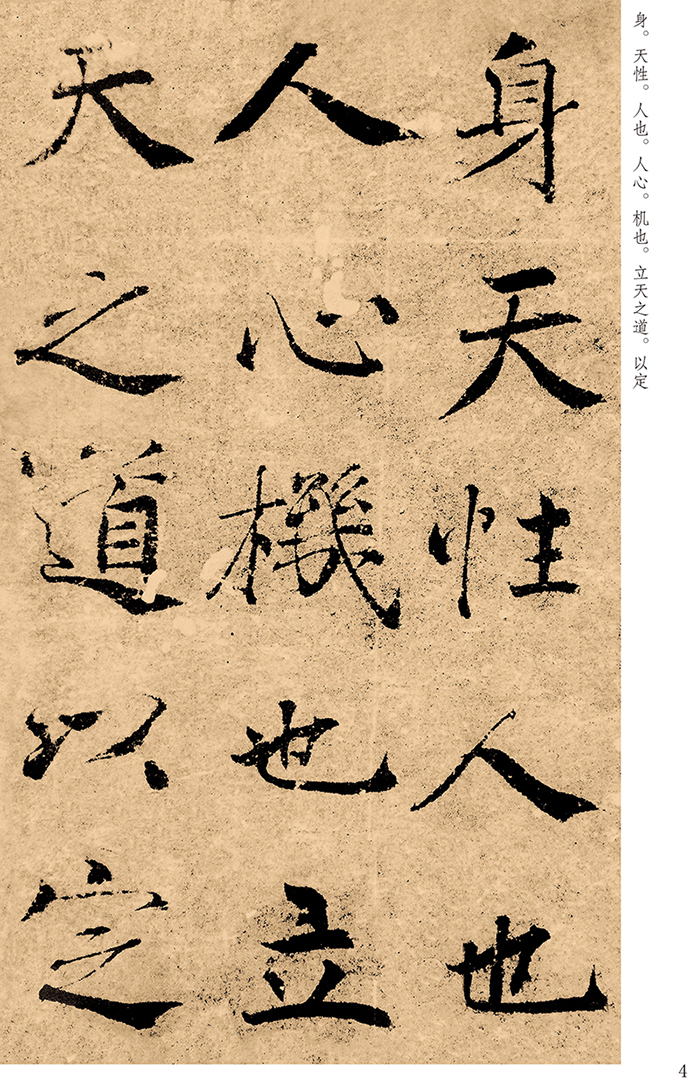 身。天性。人也。人心。机也。立天之道。以定
身天性人也
人心機也立
天之道以定
4